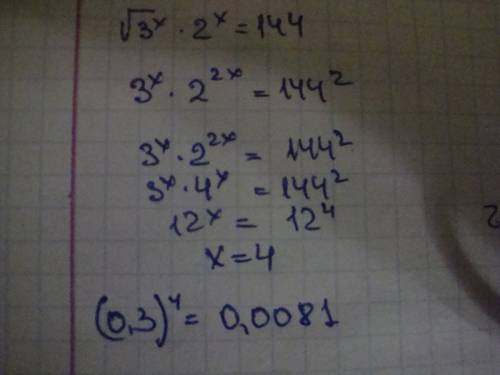 √3^x · 2^x = 144
3^x · 2^2x = 144^2
3^x · 2^2x = 144^2
3^x · 4^x = 144^2
12^x = 12^4
x = 4
(0,3)^4 = 0,0081